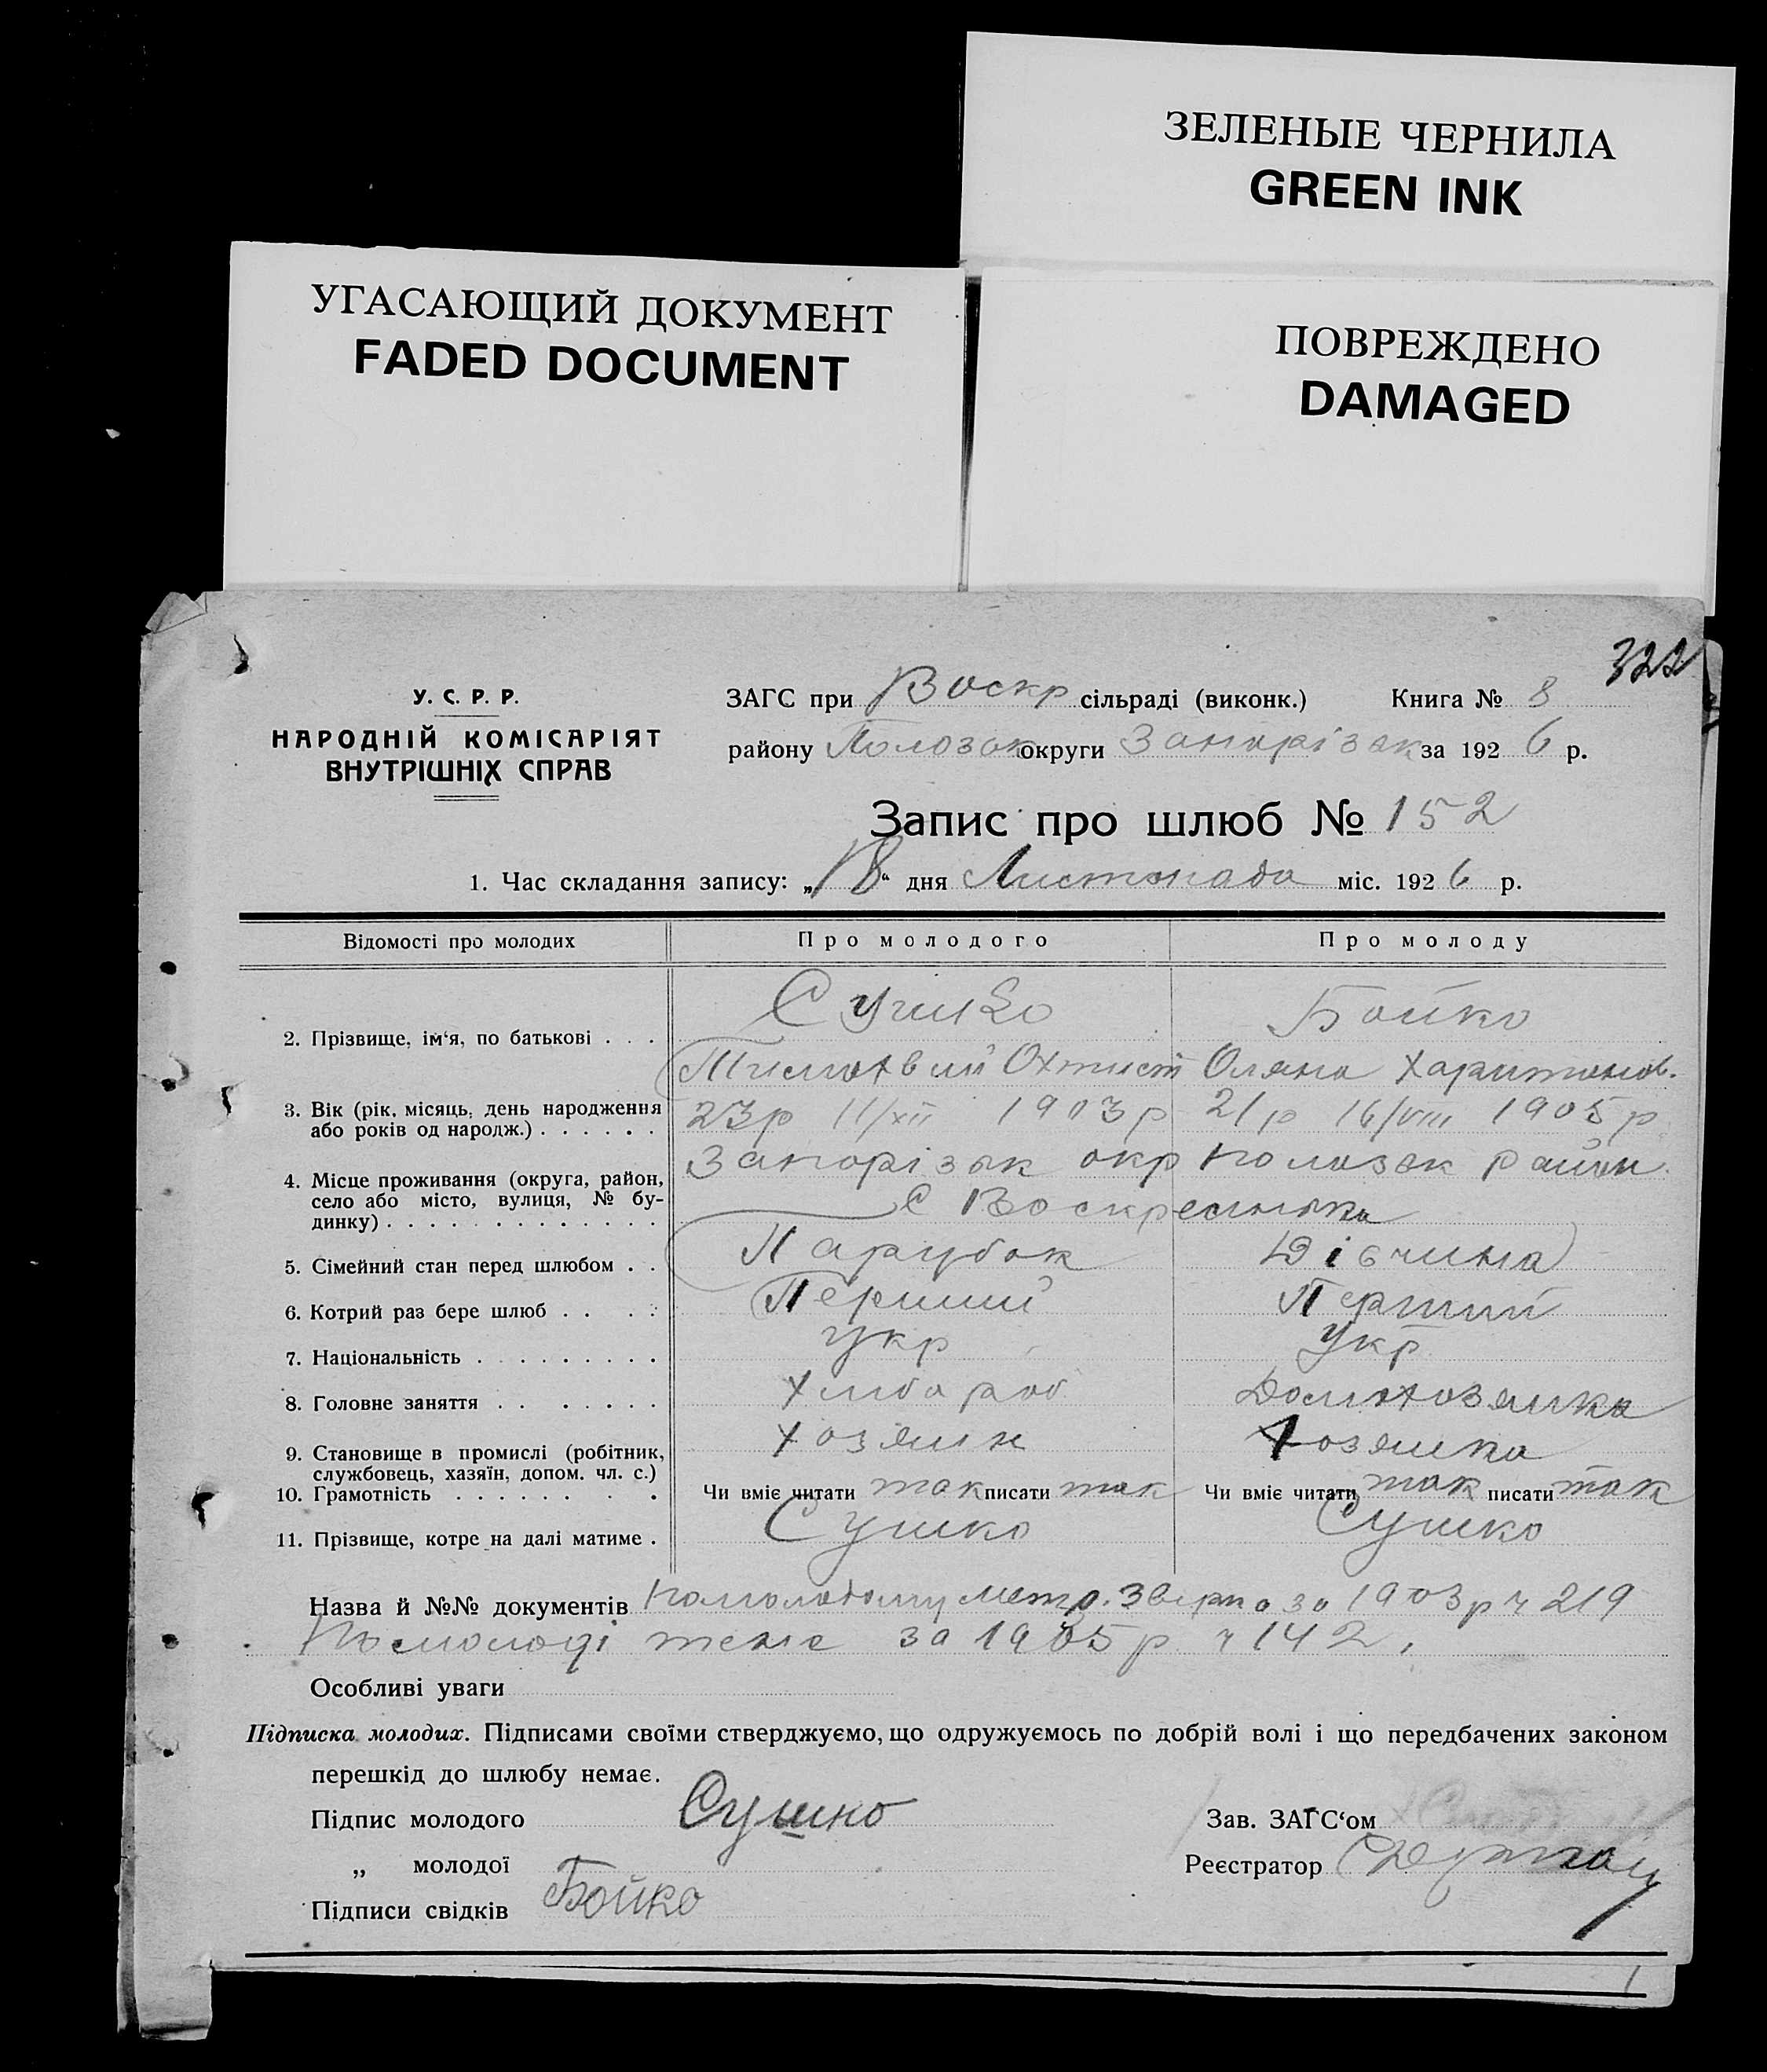 ЗЕЛЕНЫЕ ЧЕРНИЛА
GREEN INK
УГАСАЮЩИЙ ДОКУМЕНТ
FADED DOCUMENT
ПОВРЕЖДЕНО
DAMAGED
322
У. С. Р. Р.
НАРОДНІЙ КОМІСАРІЯТ
ВНУТРІШНІХ СПРАВ
ЗАГС при Воскр сільраді (виконк.) Книга № 8
району Пологок округи Запорізьк за 1926 р.
Запис про шлюб № 152
1. Час складання запису: „18“ дня Листопада міс. 1926 р.
Відомості про молодих Про молодого Про молоду
Сушко Бойко
2. Прізвище, ім‘я, по батькові . . .
Тимохвій Охтист Оляна Харитонов.
3. Вік (рік, місяць, день народження 23р 11/XII 1903р 21р 16/VIII 1905р
або років од народж.) . . . . . .
Запорізьк окр Пологок район.
4. Місце проживання (округа, район,
село або місто, вулиця, № бу-
с Воскресенка
динку) . . . . . . . . . . . . .
5. Сімейний стан перед шлюбом . . Парубок Дівчина
6. Котрий раз бере шлюб . . . . Перший Перший
7. Національність . . . . . . . . . укр Укр
8. Головне заняття . . . . . . . Хлибороб Домохозяйка
9. Становище в промислі (робітник, Хозяин Хозяйка
службовець, хазяїн, допом. чл. с.)
10. Грамотність . . . . . . . . Чи вміє читати так писати так Чи вміє читати так писати так
11. Прізвище, котре на далі матиме . Сушко Сушко
Назва й №№ документів По молодому метр. за 1903р ч 219
По молоді теж за 1905р ч 142.
Особливі уваги
Підписка молодих. Підписами своїми стверджуємо, що одружуємось по добрій волі і що передбачених законом
перешкід до шлюбу немає.
Підпис молодого Сушко Зав. ЗАГС‘ом
„ молодої Реєстратор
Підписи свідків Бойко